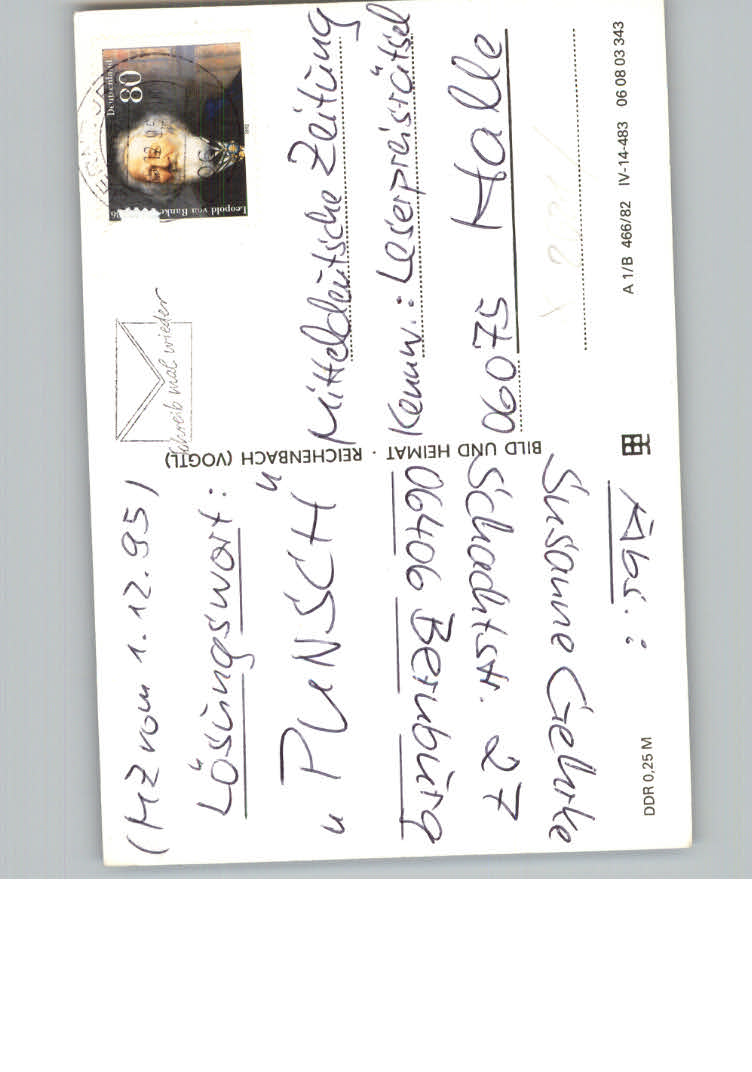 (MZ vom 1.12.95)
Lösungswort:
"PUNSCH"
Abs.:
Susanne Gehrke
Schachtstr. 27
06406 Bernburg
BILD UND HEIMAT · REICHENBACH (VOGTL)
DDR 0,25 M
Deutschland
80
Leopold von Ranke
Schreib mal wieder
Mitteldeutsche Zeitung
Kennw.: Leserpreisrätsel
06075 Halle
A 1/B 466/82 IV-14-483 06 08 03 343